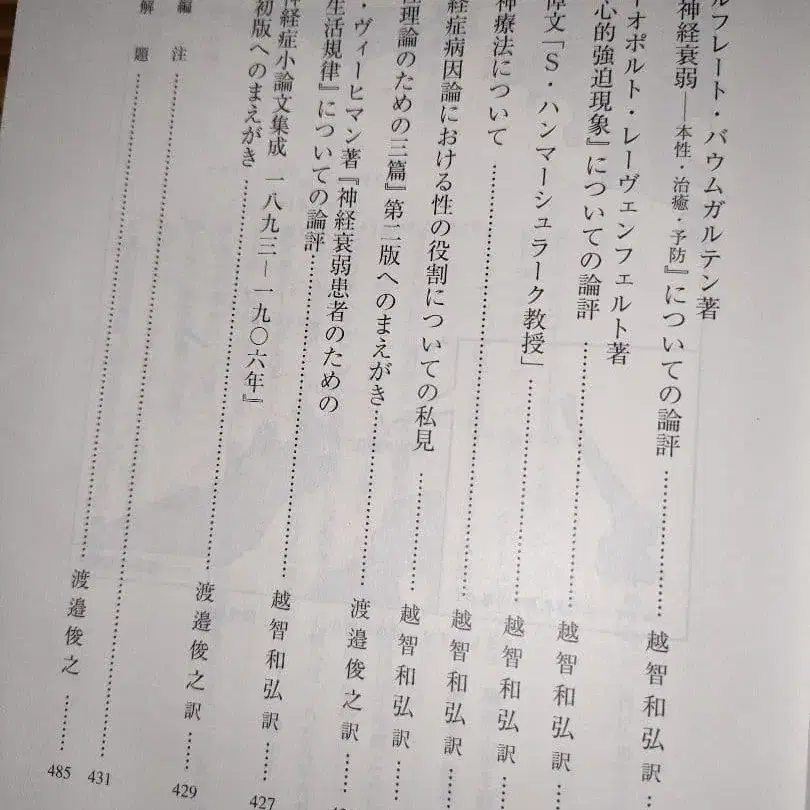 ルフレート・バウムガルテン著
神経衰弱——本性・治癒・予防』についての論評……越智和弘 訳……
ーオポルト・レーヴェンフェルト著
心的強迫現象』についての論評……越智和弘 訳……
悼文「S・ハンマーシュラーク教授」……越智和弘 訳……
神療法について……越智和弘 訳……
経症病因論における性の役割についての私見……越智和弘 訳……
性理論のための三篇』第二版へのまえがき……渡邉俊之 訳……
・ヴィーヒマン著『神経衰弱患者のための
生活規律』についての論評……越智和弘 訳……427
神経症小論文集成 一八九三—一九〇六年』
初版へのまえがき……渡邉俊之 訳……429
編注……431
解題……渡邉俊之……485